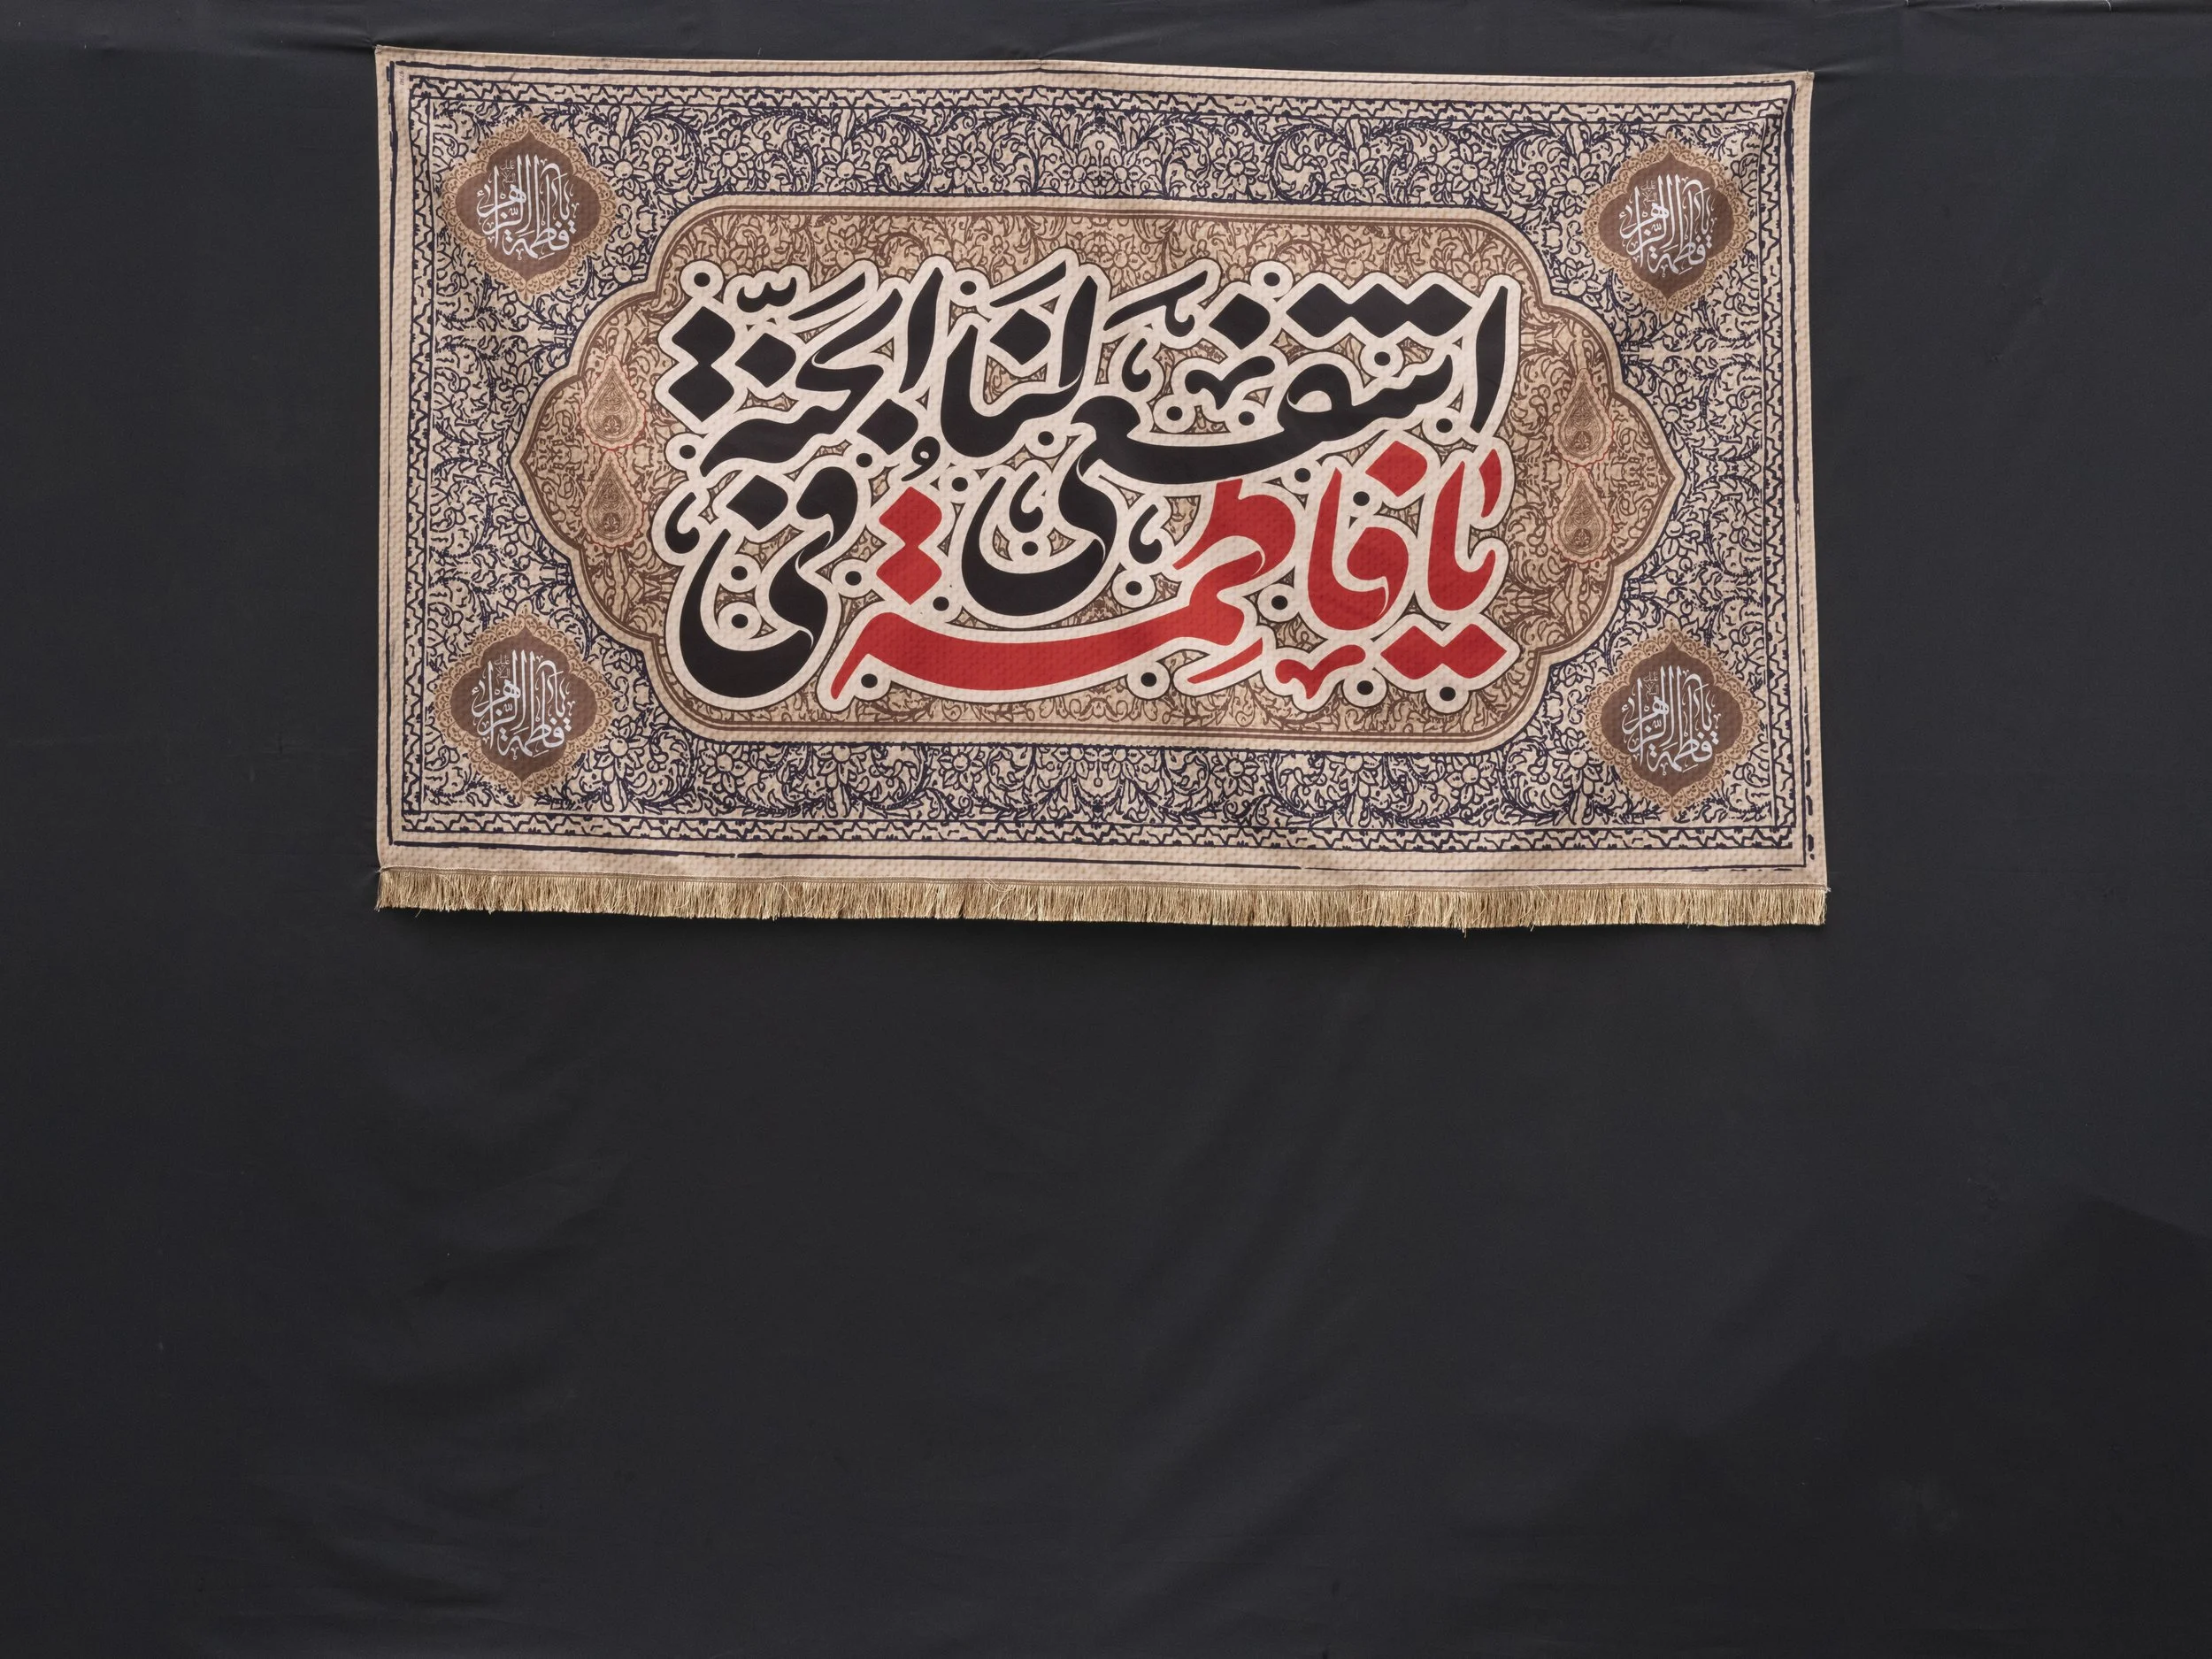 يا فاطمة اشفعي لنا في الجنة
يا فاطمة الزهراء
يا فاطمة الزهراء
يا فاطمة الزهراء
يا فاطمة الزهراء